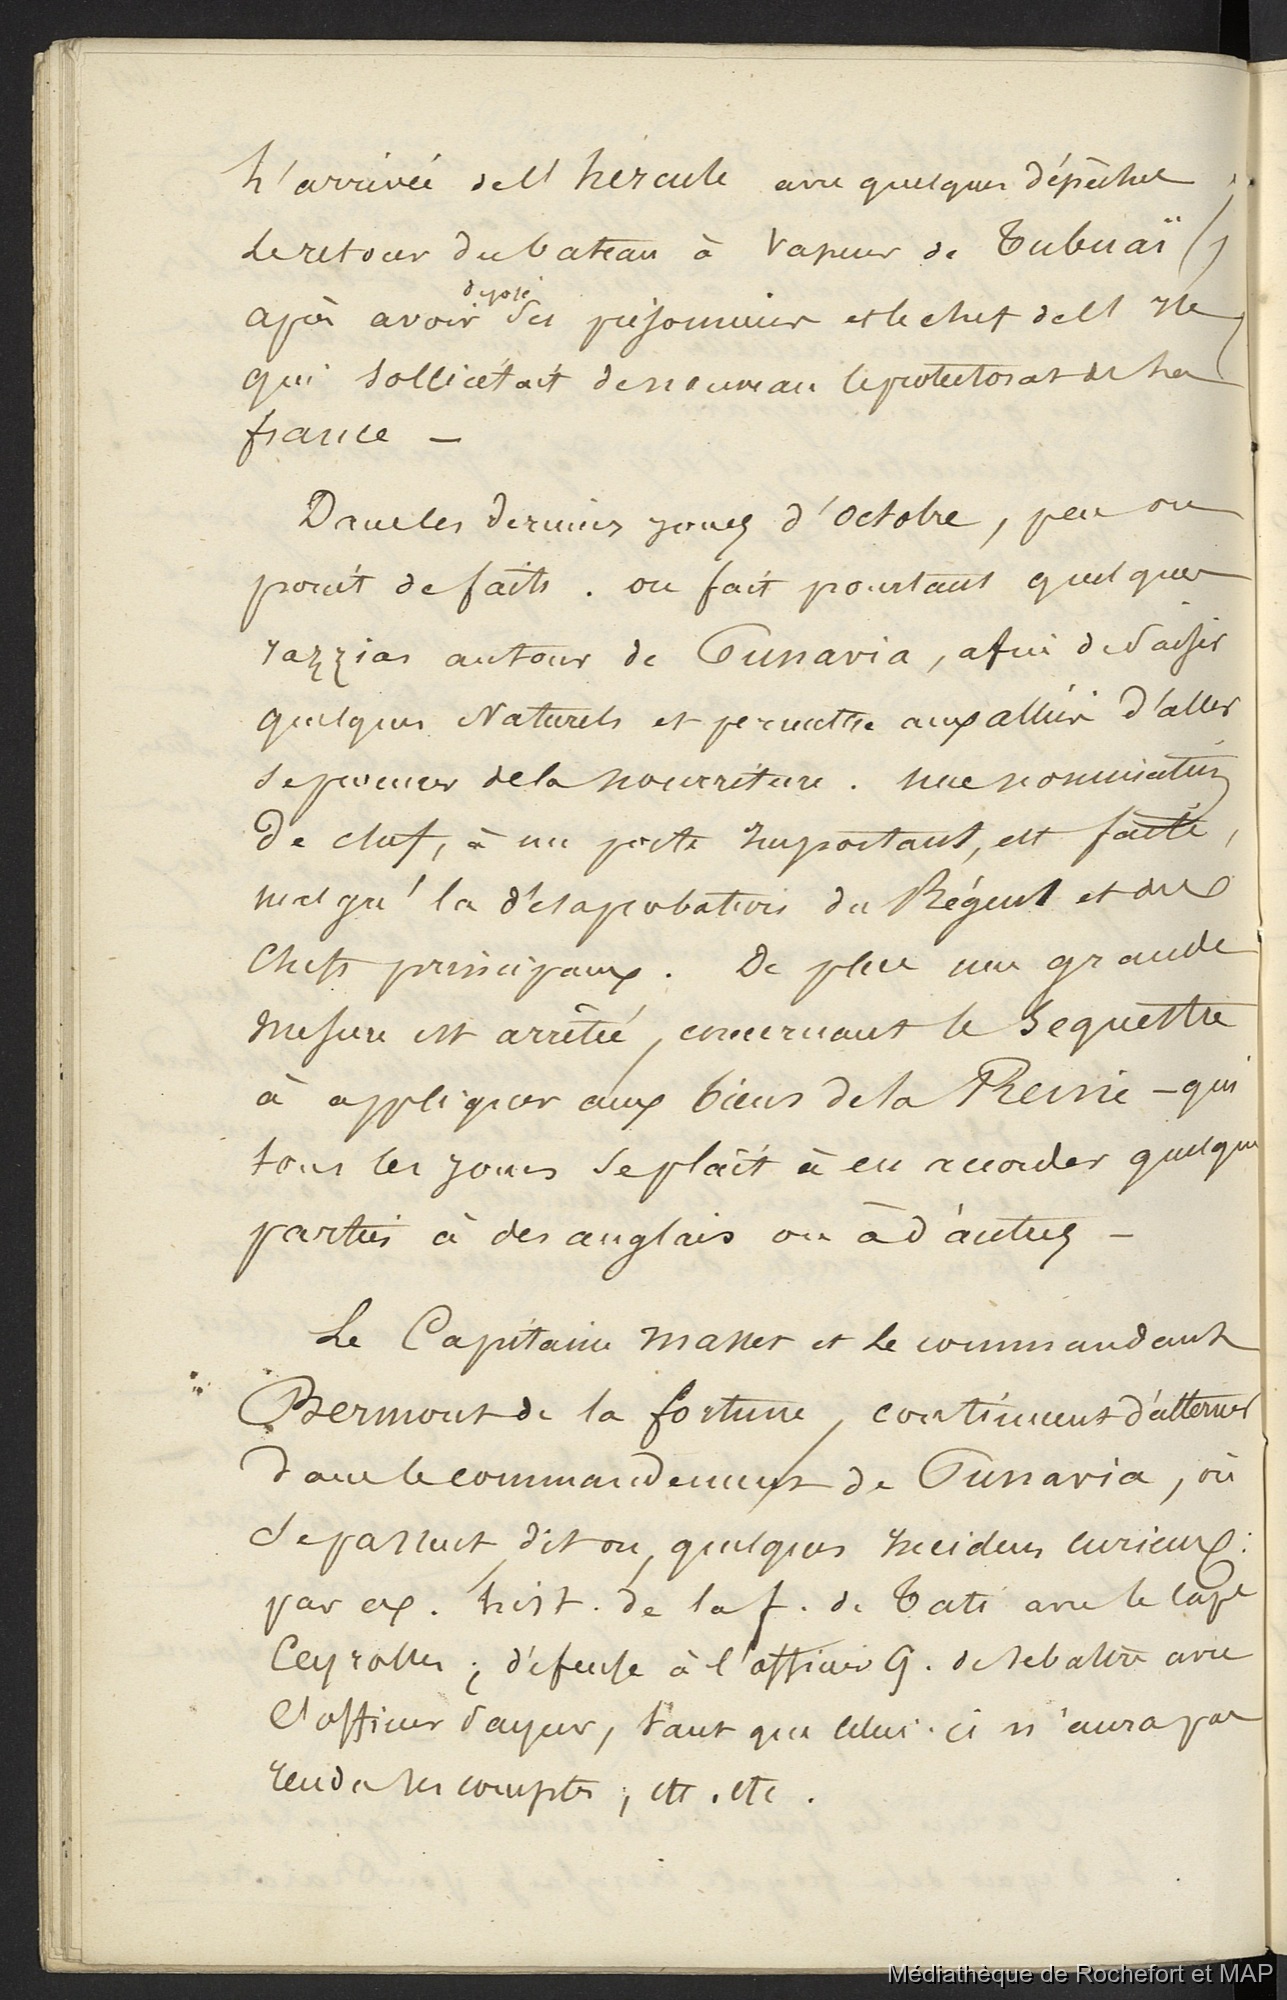 L'arrivée de l'hercule avec quelques dépêches,
Le retour du bateau à vapeur de Tubuaï
déposé
après avoir des prisonniers et le chef de l'Ile
qui sollicitait de nouveau le protectorat de la
france —
Dans les derniers jours d'octobre, peu ou
point de faits. on fait pourtant quelques
razzias autour de Punavia, afin de saisir
quelques Naturels et permettre aux alliés d'aller
se procurer de la nourriture. Une nomination
de chef, à un poste important, est faite,
malgré la désaprobation du Régent et des
Chefs principaux. De plus une grande
mesure est arrêtée, concernant le Sequestre
à appliquer aux biens de la Reine — qui
tous les jours se plait à en accorder quelques
parties à des anglais ou à d'autres —
Le Capitaine Masset et le commandant
Bermont de la fortune, continuent d'alterner
dans le commandement de Punavia, où
se passent, dit on, quelques incidens curieux:
par ex. hist. de la f. de Tati avec le Cape
; défense à l'officier G. de se battre avec
l'officier payeur, tant que celui-ci n'aura pas
rendu ses comptes, etc. etc.
Médiathèque de Rochefort et MAP